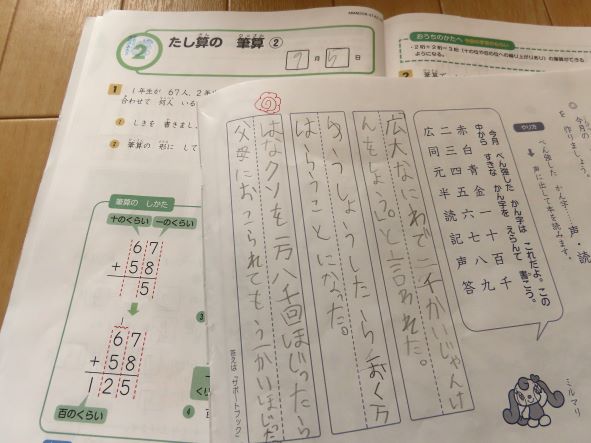 2
たし算の 筆算②
9月5日
おうちのかたへ
ようになる。
1
1年生が 67人、2年
合わせて 何人 いる
① しきを 書きまし
② 筆算の 形に して
筆算の しかた
十のくらい
一のくらい
67
+58
5
1
67
+58
125
百のくらい
3
4
◎今月の
を 作りましょう。
べん強した かん字……声・読
声に出して本を読みます。
やり方
今月 べん強した かん字は これだよ。この
中から すきな かん字を えらんで 書こう。
赤白青金一十百千
二三四五六七八九
広同元半読記声答
ミルマリ
広大なにわで二千かいじゃんけ
んをしよう。と言われた。
ゆうしょうしたら一おく万
はらうことになった。
はなクソを一万八千回ほじったら
父母におこられてもう一かいほじった
答えは「サポートブック」